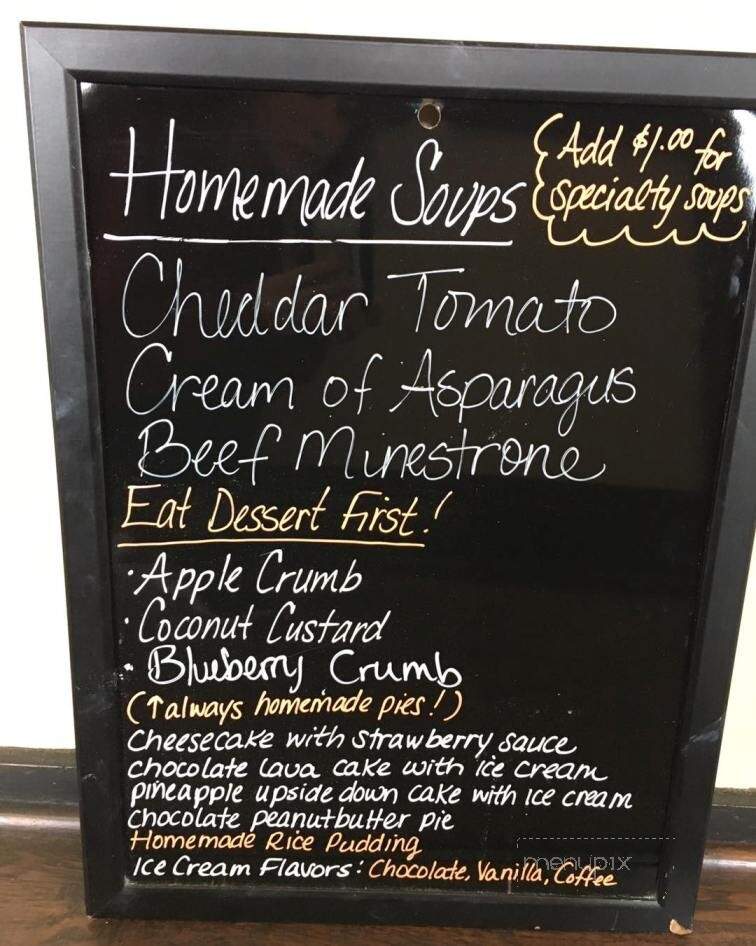 Homemade Soups
Add $1.00 for
specialty soups
Cheddar Tomato
Cream of Asparagus
Beef Minestrone
Eat Dessert First!
· Apple Crumb
· Coconut Custard
· Blueberry Crumb
(↑always homemade pies!)
Cheesecake with strawberry sauce
chocolate lava cake with ice cream
pineapple upside down cake with ice cream
chocolate peanutbutter pie
Homemade Rice Pudding
Ice Cream Flavors: Chocolate, Vanilla, Coffee
menupix